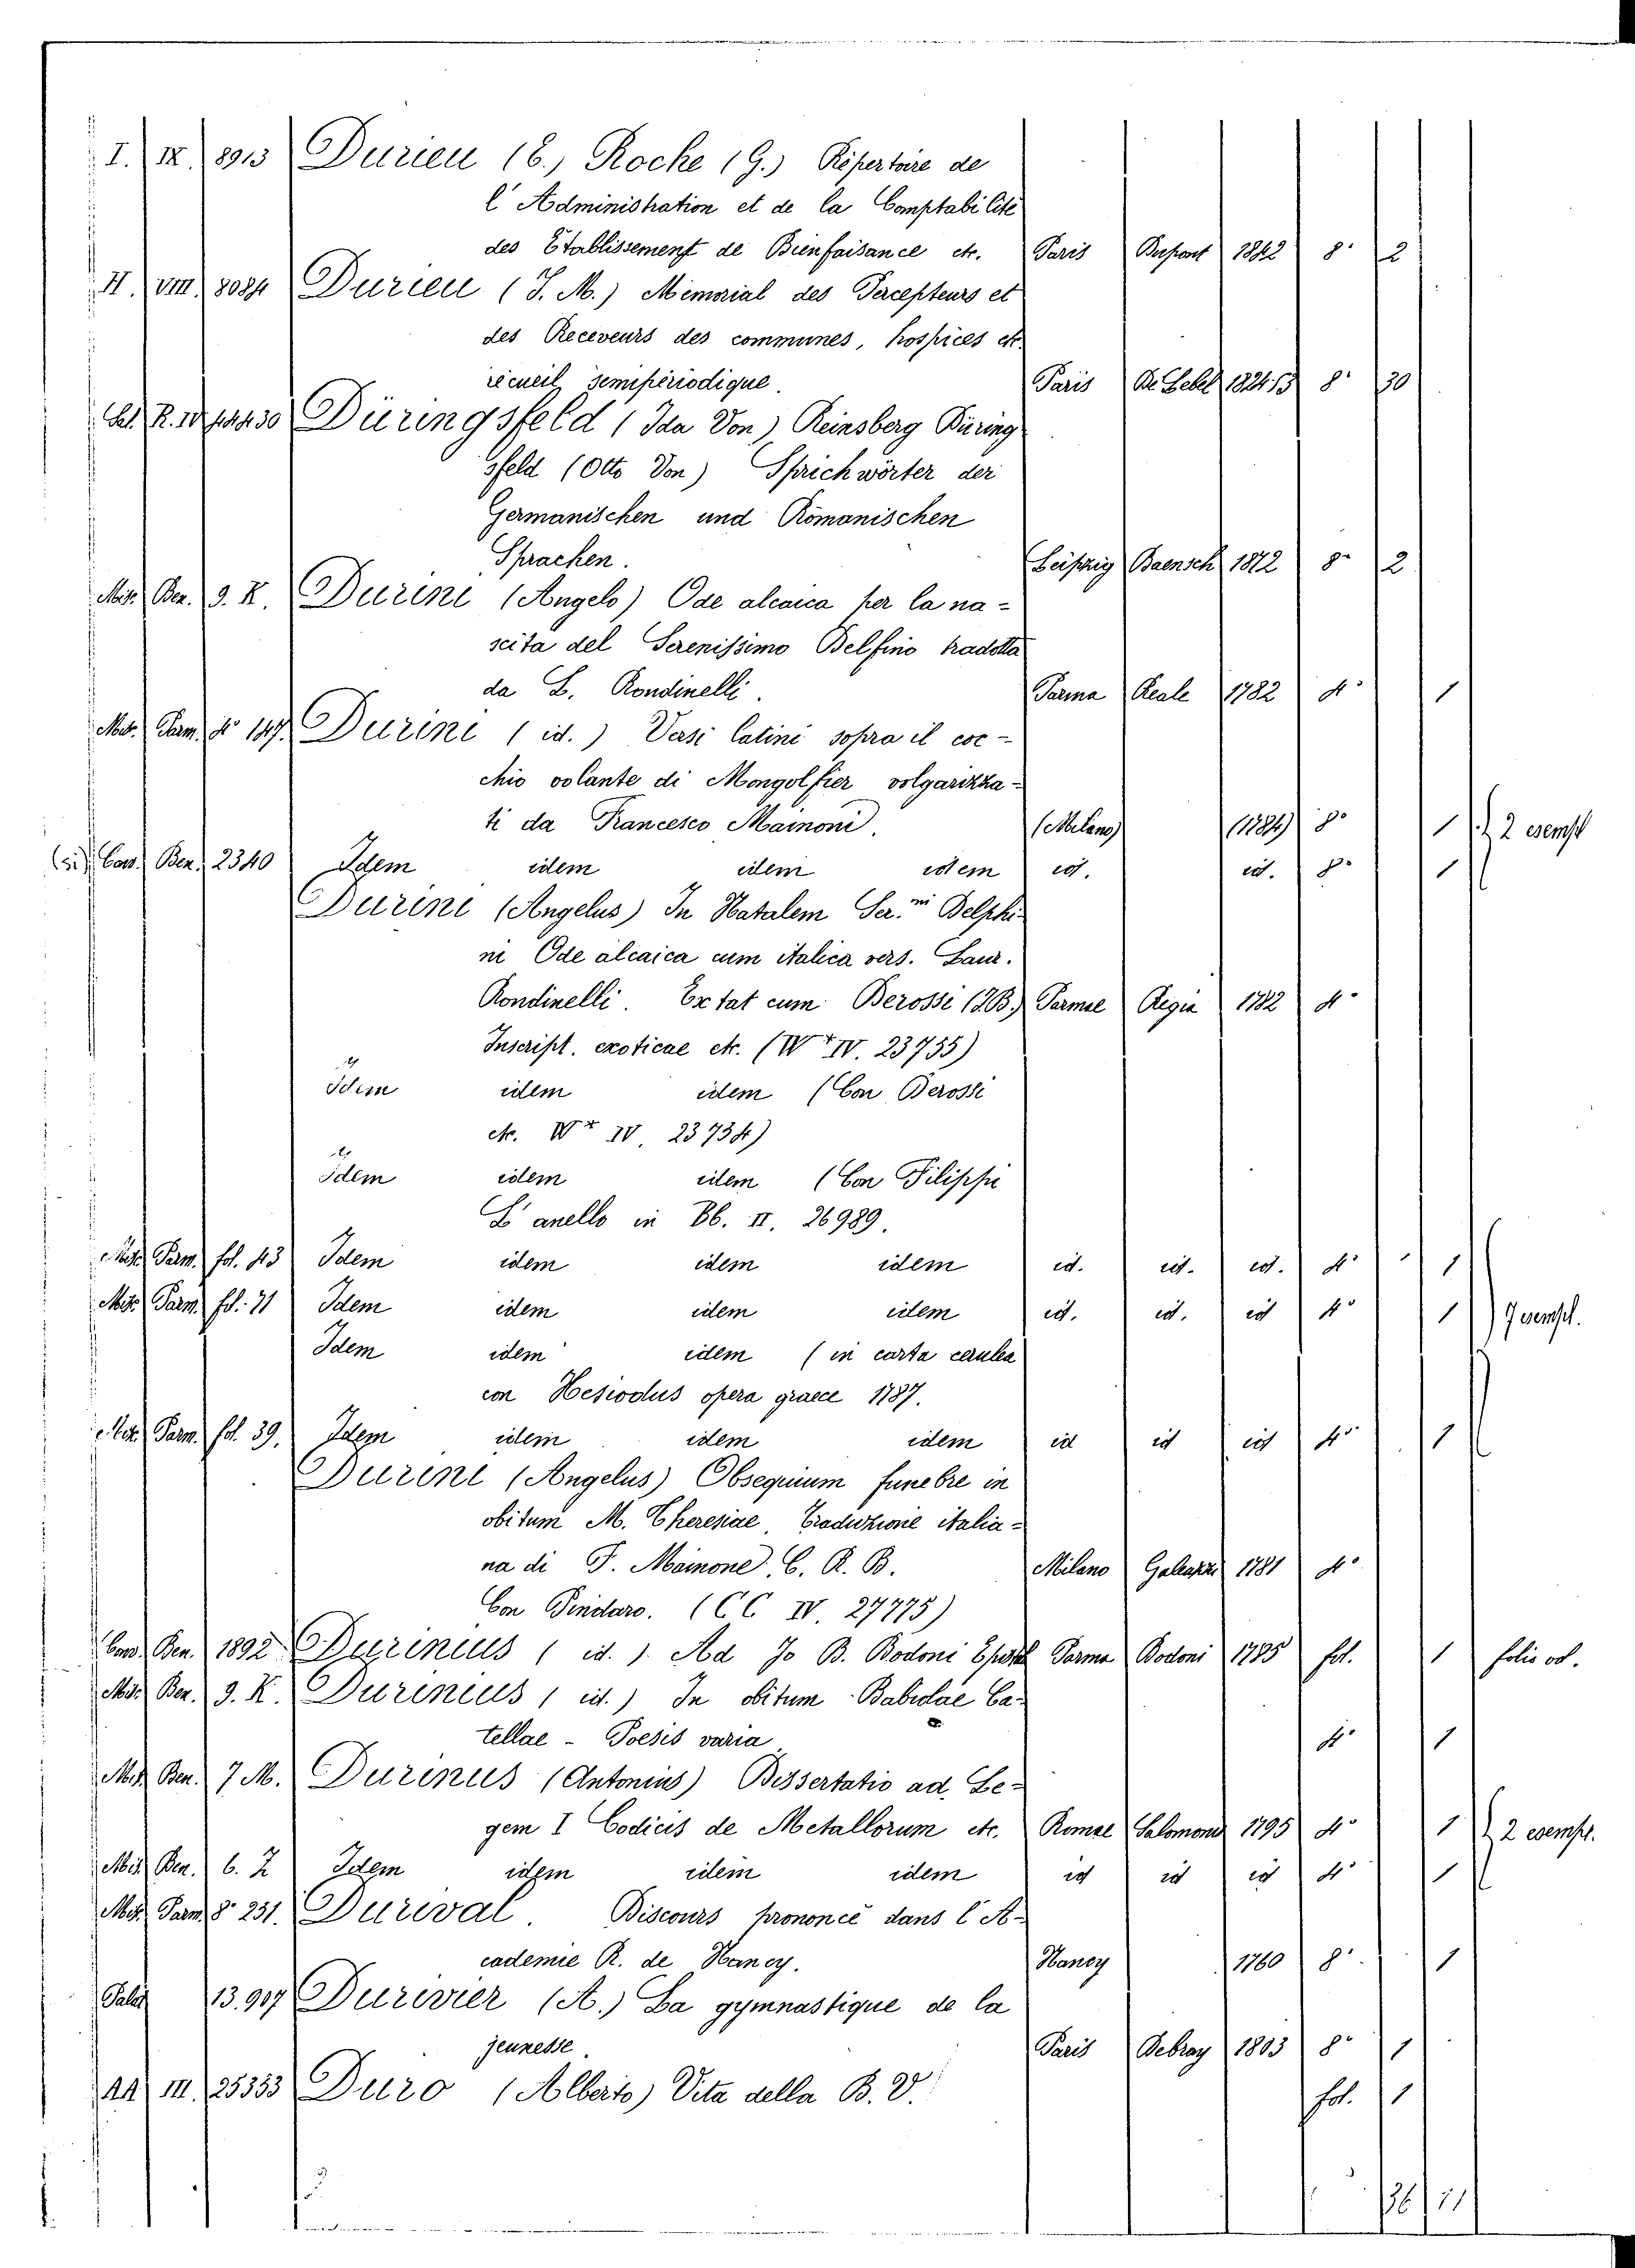 I. IX. 8913 Durieu (E.) Roche (G.) Répertoire de
l'Administration et de la Comptabilité
des Etablissement de Bienfaisance etc. Paris Dupont 1842 8° 2
II. VIII. 8084 Durieu (J. M.) Mémorial des Percepteurs et
des Receveurs des communes, hospices etc.
récueil semipériodique. Paris 8° 30
Düringsfeld (Ida Von) Reinsberg Düring
sfeld (Otto Von) Sprichwörter der
Germanischen und Römanischen
Sprachen. Leipzig Baensch 1872 8° 2
Misc. Ben. 9. K. Durini (Angelo) Ode alcaica per la na-
scita del Serenissimo Delfino tradotta
da L. Rondinelli. Parma Reale 1782 4° 1
Misc. Parm. 4° 147. Durini (id.) Versi latini sopra il coc-
chio volante di Mongolfier volgarizza-
ti da Francesco Mainoni. (Milano) (1784) 8° 1 } 2 esempl
(si) Cass. Ben. 2340 Idem idem idem idem id. id. 8° 1
Durini (Angelus) In Natalem Ser.mi Delphi
ni Ode alcaica cum italica vers. Laur.
Rondinelli. Extat cum Berossi (J.B.) Parmae Regia 1782 4°
Inscript. exoticae etc. (W* IV. 23755)
Idem idem idem (Con Berossi
etc. W* IV. 23734)
Idem idem idem (Con Filippi
L'anello in Bb. II. 26989.
Misc. Parm. fol. 43 Idem idem idem idem id. id. id. 4° 1
Misc. Parm. fol. 71 Idem idem idem idem id. id. id 4° 1 } 7 esempl.
Idem idem idem (in carta cerulea
con Hesiodus opera graece 1787.
Misc. Parm. fol. 39. Idem idem idem idem id id id 4° 1
Durini (Angelus) Obsequium funebre in
obitum M. Theresiae, Traduzione italia-
na di F. Mainone C. R. B. Milano Galeazzi 1781 4°
Con Pindaro. (CC IV 27775)
Cass. Ben. 1892 Durinius (id.) Ad Jo B. Bodoni Epist Parma Bodoni 1785 fol. 1 folio vol.
Misc. Ben. 9. K. Durinius (id.) In obitum Babiolae Ca-
tellae - Poesis varia 4° 1
Misc. Ben. 7 M. Durinus (Antonius) Dissertatio ad Le-
gem I Codicis de Metallorum etc. Romae Salomoni 1795 4° 1 } 2 esempl.
Misc. Ben. 6. Z Idem idem idem idem id id id 4° 1
Misc. Parm. 8° 231. Durival. Discours prononcé dans l'A-
cademie R. de Nancy. Nancy 1760 8° 1
Palat 13.907 Durivier (A.) La gymnastique de la
jeunesse. Paris Debray 1803 8° 1
AA III. 25333 Duro (Alberto) Vita della B. V. fol. 1
36 11